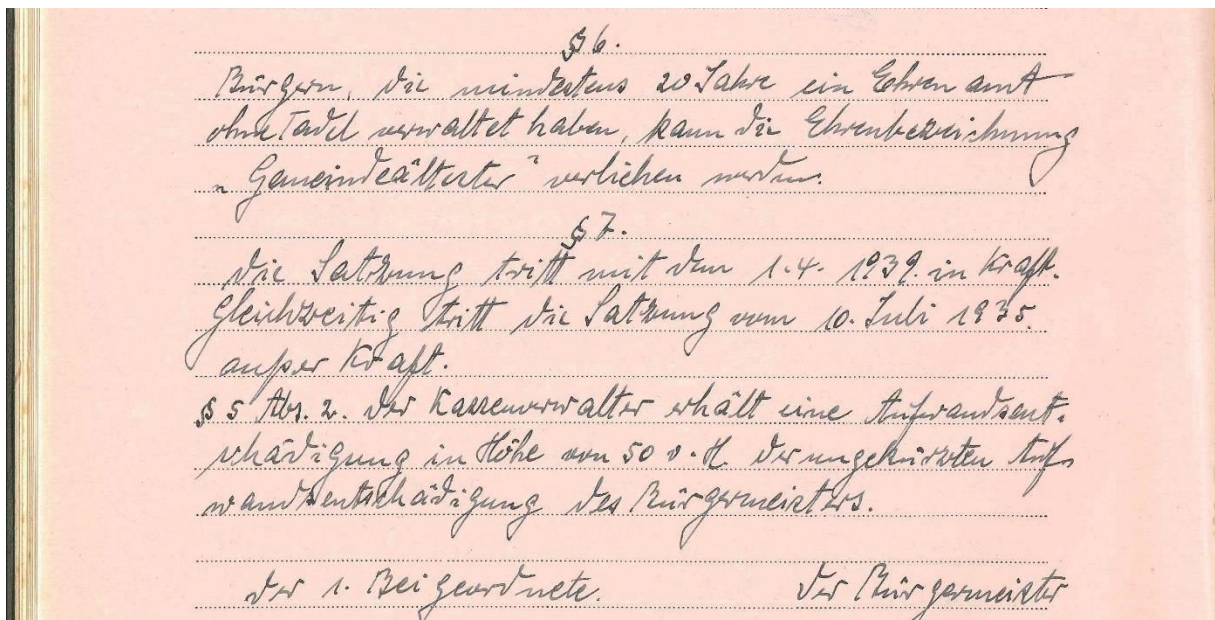 § 6.
Bürgern, die mindestens 20 Jahre ein Ehrenamt
ohne Tadel verwaltet haben, kann die Ehrenbezeichnung
„Gemeindeältester" verliehen werden.
§ 7.
Die Satzung tritt mit dem 1.4. 1939. in Kraft.
Gleichzeitig tritt die Satzung vom 10. Juli 1935.
außer Kraft.
§ 5 Abs. 2. Der Kassenverwalter erhält eine Aufwandsent-
schädigung in Höhe von 50 v. H. der ungekürzten Auf-
wandsentschädigung des Bürgermeisters.
Der 1. Beigeordnete. Der Bürgermeister